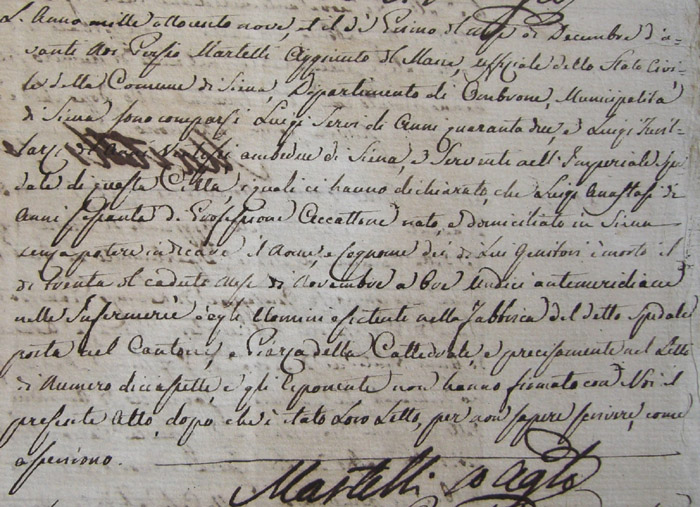 L'Anno mille ottocento nove, et il dì Primo del mese di Decembre d'a-
vanti Noi Persio Martelli Aggiunto del Maire, uffiziale dello Stato Civi-
le della Comune di Siena, Dipartimento di Ombrone, Municipalità
di Siena sono comparsi Luigi Servi di Anni quaranta due, e Luigi
ambedue di Siena, e Serventi nell'Imperiale Spe-
dale di questa Città, i quali ci hanno dichiarato, che Luigi Anastasi di
Anni sessanta di Professione Accattone nato, e domiciliato in Siena
senza potere indicare il Nome, e Cognome dei di Lui Genitori è morto il
dì trenta del cadute mese di Novembre a Ore Undici antemeridiane
nelle Infermerie degli Uomini esistente nella Fabbrica del detto Spedale
posta nel Cantone, e Piazza della Cattedrale, e precisamente nel Letto
di Numero diciassette, e gli Esponenti non hanno firmato con Noi il
presente Atto, dopo che è stato Loro Letto, per non sapere scrivere, come
asseriono.
Martelli Agto